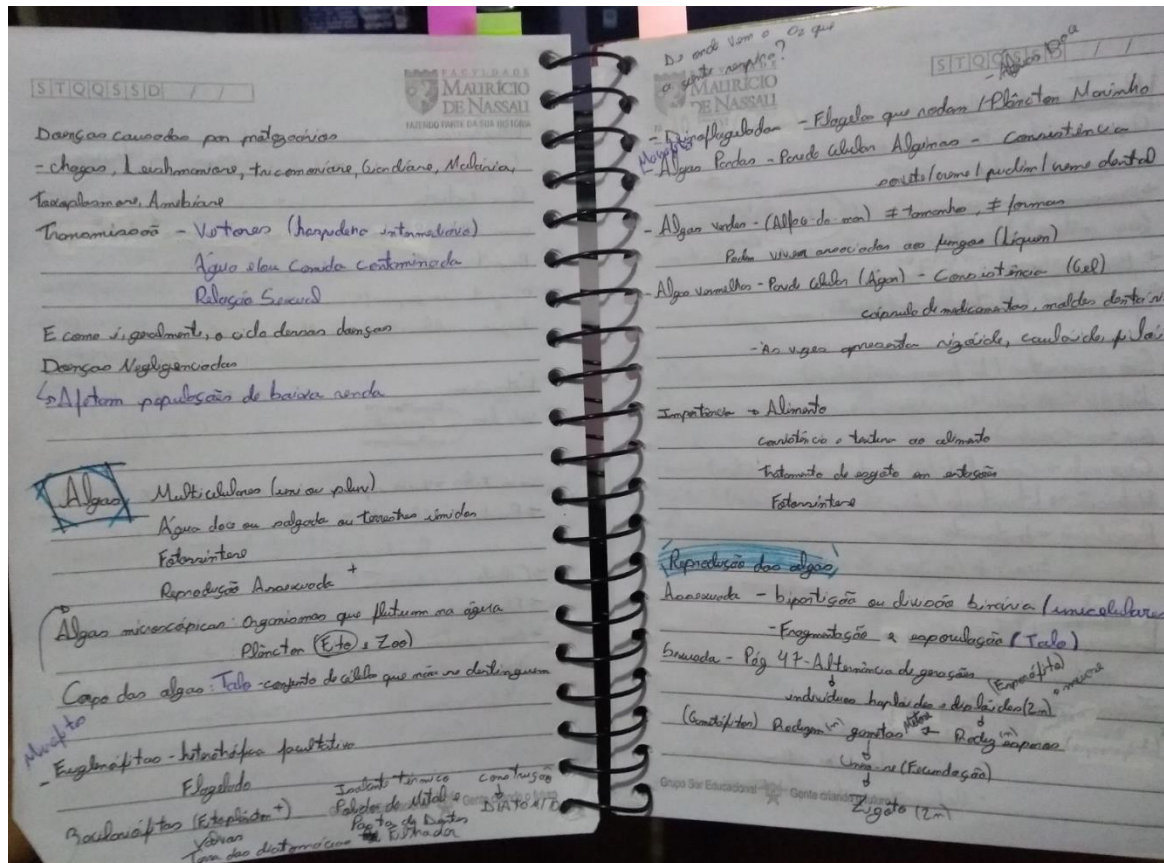 STQQSSD / /
FACULDADE
MAURÍCIO
DE NASSAU
FAZENDO PARTE DA SUA HISTÓRIA
Doenças causadas por protozoários
- chagas, Leishmaniose, tricomoníase, Giardíase, Malária,
Toxoplasmose, Amebíase
Transmissão - Vetores (hospedeiro intermediário)
Água e/ou Comida contaminada
Relação Sexual
E como é, geralmente, o ciclo dessas doenças
Doenças Negligenciadas
↳ Afetam população de baixa renda
Algas
Multicelulares (uni ou pluri)
Água doce ou salgada ou terrestres úmidos
Fotossíntese
Reprodução Assexuada +
Algas microscópicas: Organismos que flutuam na água
Plâncton (Fito e Zoo)
Corpo das algas: Talo - conjunto de células que não se distinguem
- Euglenófitas - heterotrófica facultativa
Flagelado
Bacilariófitas (Fitoplânctn +)
Várias
Isolante térmico
Polidor de Metal e
Pasta de Dentes
Construção
Filtrador
De onde vem o O2 que
a gente respira?
STQQSSD / /
MAURÍCIO
DE NASSAU
- Dinoflagelados - Flagelos que rodam / Plâncton Marinho
- Algas Pardas - Parede celular Alginas - Consistência
sorvete/creme/pudim/creme dental
- Algas verdes - (Alface-do-mar) ≠ tamanho, ≠ formas
Podem viver associadas aos fungos (Líquen)
- Algas vermelhas - Parede Celular (Ágar) - Consistência (Gel)
cápsula de medicamentos, moldes
- Às vezes apresenta rizóide, caulóide,
Importância → Alimento
consistência e textura ao alimento
tratamento de esgoto em estações
Fotossíntese
Reprodução das algas
Assexuada - bipartição ou divisão binária (unicelulares
- Fragmentação e esporulação (Talo)
Sexuada - Pág 47 - Alternância de gerações
(Esporófito)
indivíduos haplóides e diplóides (2n)
(Gametófitos) Produzem (n) gametas
Produz (n) esporos
Une-se (Fecundação)
Zigoto (2n)
Grupo Ser Educacional
Gente criando o futuro